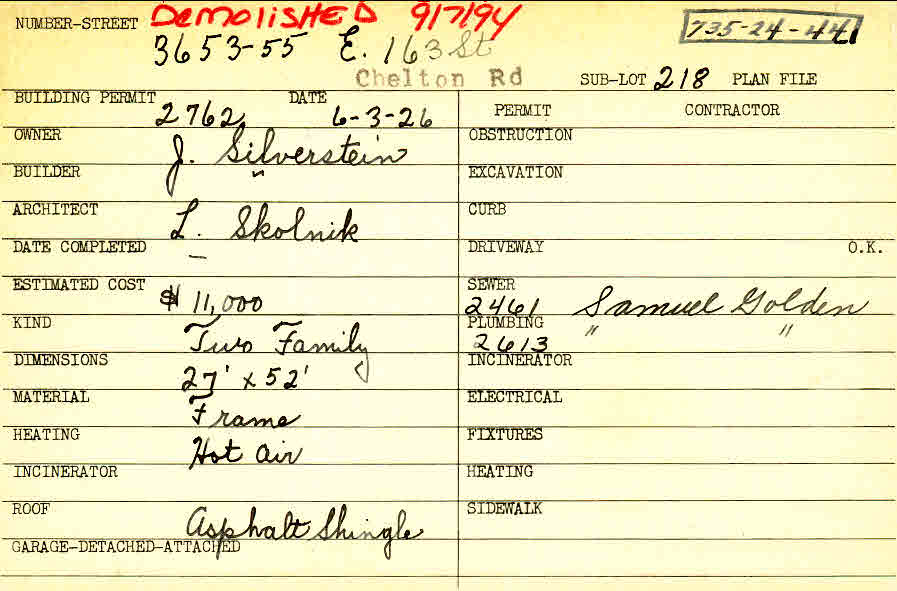 NUMBER-STREET DEMOLISHED 9/7/94 735-24-44
3653-55 E. 163 St
Chelton Rd SUB-LOT 218 PLAN FILE
BUILDING PERMIT DATE PERMIT CONTRACTOR
2762 6-3-26
OWNER OBSTRUCTION
J. Silverstein
BUILDER " EXCAVATION
ARCHITECT CURB
L. Skolnik
DATE COMPLETED — DRIVEWAY O.K.
ESTIMATED COST SEWER
$ 11,000 2461 Samuel Golden
KIND PLUMBING " "
Two Family 2613
DIMENSIONS INCINERATOR
27' x 52'
MATERIAL ELECTRICAL
Frame
HEATING FIXTURES
Hot air
INCINERATOR HEATING
ROOF SIDEWALK
Asphalt Shingle
GARAGE-DETACHED-ATTACHED